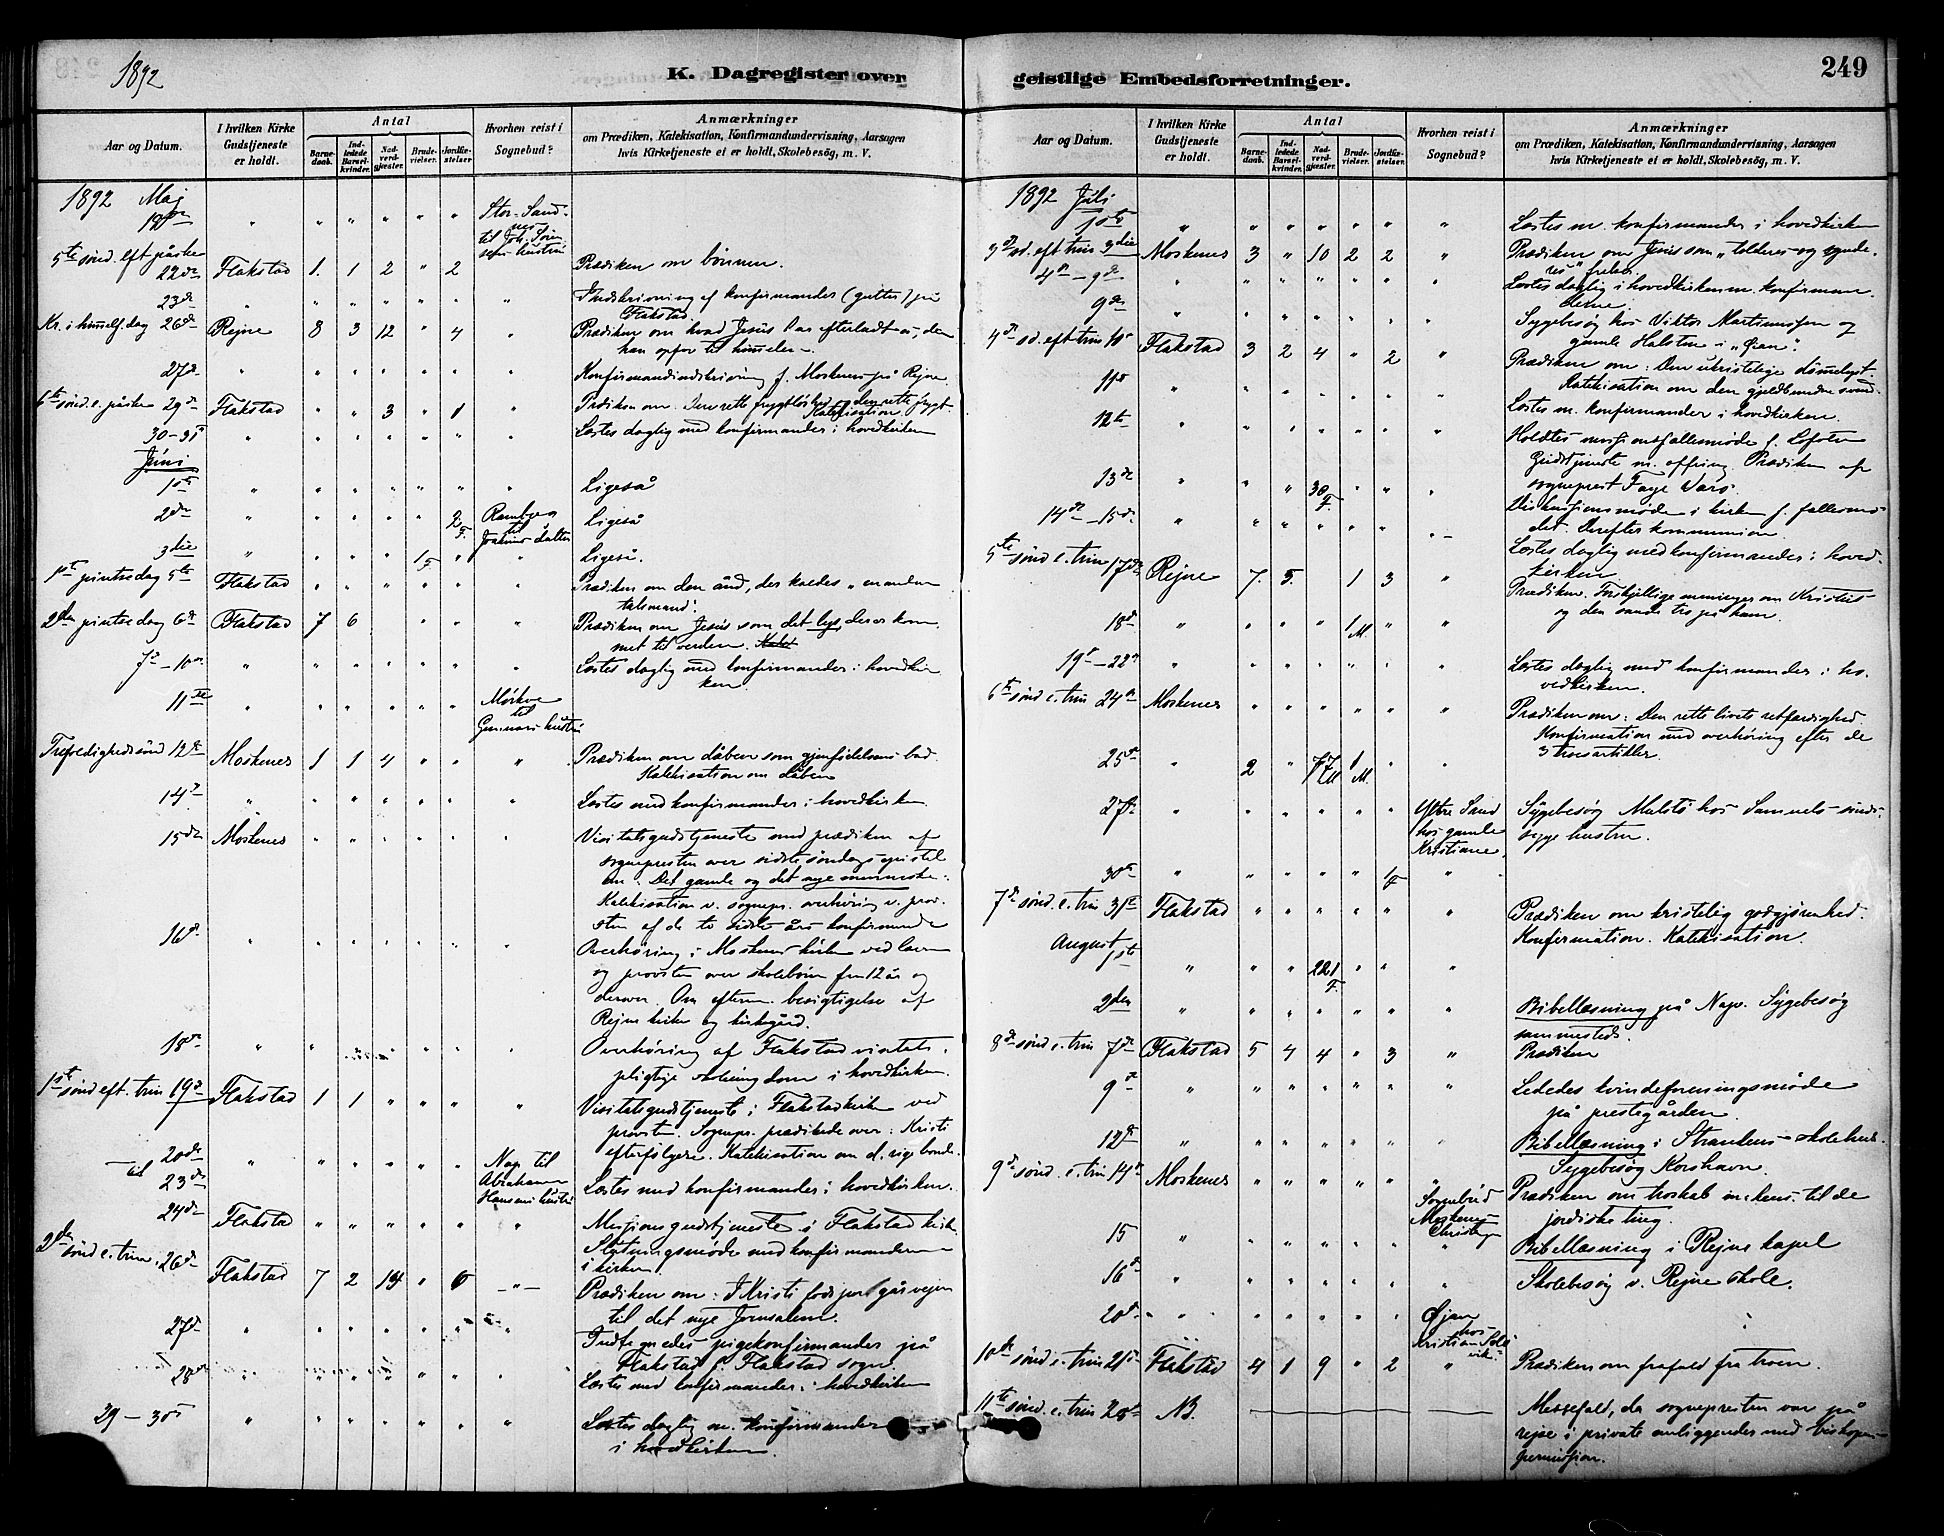 1892
K. Dagregister over
geistlige Embedsforretninger.
249
Aar og Datum.
I hvilken Kirke Gudstjeneste er holdt.
Antal
Barnedaab.
Indledede Barselkvinder.
Nadverdgjæster.
Brudevielser.
Jordfæstelser
Hvorhen reist i Sognebud?
Anmærkninger
om Prædiken, Katekisation, Konfirmandundervisning, Aarsagen
hvis Kirketjeneste ei er holdt, Skolebesög, m. V.
1892 Maj
Stor-Sand-
nes
5te sönd. eft påske
22de Flakstad 1. 1 2 " 2 Prædiken om bönnen.
23de " " " " " " " Indskrivning af konfirmander (gutter) på
Flakstad
Kr. i himmelf. dag 26de Rejne 8 3 12 " 4 " Prædiken om hvad Jesus har efterladt os, den
han opfor til himmelen.
27de " " " " " " " Konfirmandindskrivning f. Moskenes på Rejne.
6te sönd. e. påske 29de Flakstad " " 3 " 1 " Prædiken om: Den rette frygtlöshed og den rette frygt.
Katekisation.
30-31 " " " " " " " Læstes daglig med konfirmander i hovedkirken
Juni
1ste " " " " " " " Ligeså
2de " " " " " 2 F. Ramberg til Ligeså
3die " " " " 1 F " " Ligeså.
1ste pintsedag 5te Flakstad " " " " " " Prædiken om den ånd, der kaldes "
talsmand".
2den pintsedag 6te Flakstad 7 6 " " " Prædiken om Jesus som det lys, der er kom-
met til verden.
7de-10de " " " " " " " Læstes daglig med konfirmander i hovedkir-
ken
11te " " " " " " Mörkve
til
hustru
Trefoldighedssönd 12te Moskenes 1 1 4 " " " Prædiken om dåben som gjenfödelsens bad.
Katekisation om dåben
14de " " " " " " " Læstes med konfirmander i hovedkirken.
15de Moskenes " " " " " " Visitatsgudstjeneste med prædiken af
sognepresten over sidste söndags epistel
om: Det gamle og det nye menneske.
Katekisation v. sognepr. overhöring v. prov-
sten af de to sidste års konfirmerede
16de " " " " " " " Overhöring i Moskenes kirke ved
og provsten over skolebörn fra 12 år og
derover. Om efterm. besigtigelse af
Rejne kirke og kirkegård.
18de " " " " " " " Overhöring af Flakstad visitats-
pligtige ungdom i hovedkirken.
1ste sönd eft. trin 19de Flakstad 1 1 " " " " Visitatsgudstjeneste i Flakstad kirke ved
provsten. Sognepr. prædikede over: Kristi
efterfölgere. Katekisation om d.
20de
til 23de " " " " " " Nap til
Abraham
Hansens hustru Læstes med konfirmander i hovedkirken.
24de Flakstad " " " " " " Missionsgudstjeneste i Flakstad kirke.
Slutningsmöde med konfirmanderne
i kirken.
2den sönd e. trin. 26de Flakstad 7 2 14 " 6 -"- Prædiken om: I Kristi fodspor går vejen
til det nye Jerusalem.
27de " " " " " " " Indtegnedes pigekonfirmander på
Flakstad f. Flakstad sogn.
28de " " " " " " " Læstes med konfirmander i hovedkirken
29-30te " " " " " " " Læstes daglig m. konfirmander
i hovedkirken.
Aar og Datum.
I hvilken Kirke Gudstjeneste er holdt.
Antal
Barnedaab.
Indledede Barselkvinder.
Nadverdgjæster.
Brudevielser.
Jordfæstelser.
Hvorhen reist i Sognebud?
Anmærkninger
om Prædiken, Katekisation, Konfirmandundervisning, Aarsagen
hvis Kirketjeneste ei er holdt, Skolebesög, m. V.
1892 Juli
1ste " " " " " " " Læstes m. konfirmander i hovedkirken
3de sd. eft trin 3die Moskenes 3 " 10 2 2 " Prædiken om Jesus som "tolderes og synde-
res" frelser.
4de-9de " " " " " " " Læstes daglig i hovedkirken m. konfirman-
derne.
9de " " " " " " " Sygebesög hos Viktor Martinussen og
gamle Halsten i "Öian".
4de sd. eft trin 10de Flakstad 3 2 4 " 2 " Prædiken om: Den ukristelige dömmelyst.
Katekisation om den gjeldbundne
11te " " " " " " " Læstes m. konfirmander i hovedkirken.
12te " " " " " " " Holdtes missionsfællesmöde f. Lofoten
Gudstjeneste m. offring. Prædiken af
sogneprest Faye Værö.
13de " " " 30 F. " " " Diskussionsmöde i kirken f. fællesmö-
det. Derefter kommunion.
14de-15de " " " " " " " Læstes daglig med konfirmander i hoved-
kirken
5te sönd e. trin 17de Rejne 7. 5. 1 3 " Prædiken. Forskjellige meninger om Kristus
og den sande tro på ham.
18de " " " " 1 M. " "
19de-22de " " " " " " " Læstes daglig med konfirmander i ho-
vedkirken.
6te sönd e. trin 24de Moskenes " " " " " " Prædiken om: Den rette livets retfærdighed.
Konfirmation med overhöring efter de
3 trosartikler.
25de " 2 " 77 M 1 M. " "
27de " " " " " " Ytre Sand
hos gamle
Kristiane. Sygebesög hos Samuels
syge hustru.
30te " " " " " 1 F "
7de sönd. e. trin 31te Flakstad " " " " " " Prædiken om kristelig godgjörenhed.
Konfirmation. Katekisation.
August
1ste " " " 221 F. " " "
2den " " " " " " " Bibellæsning på Nap. Sygebesög
sammesteds.
8de sönd e. trin 7de Flakstad 5 4 4 " 3 " Prædiken
9de " " " " " " " Lededes kvindeforeningsmöde
på prestegården.
12te " " " " " " " Bibellæsning i Strandens skolehus.
Sygebesög Korshavn.
9de sönd. e. trin 14de Moskenes " " " " " " Prædiken om troskab m. hens. til de
jordiske ting.
15 " " " " " " Sognebud
Moskenes Bibellæsning i Rejne kapel
16de " " " " " " " Skolebesög v. Rejne skole.
20de " " " " " " Öjan
hos
10de sönd e. trin 21de Flakstad 4 1 9 " 2 " Prædiken om frafald fra troen.
11te sönd. e. trin 28de NB. Messefald, da sognepresten var på
rejse i private anliggender med biskopens
permission.